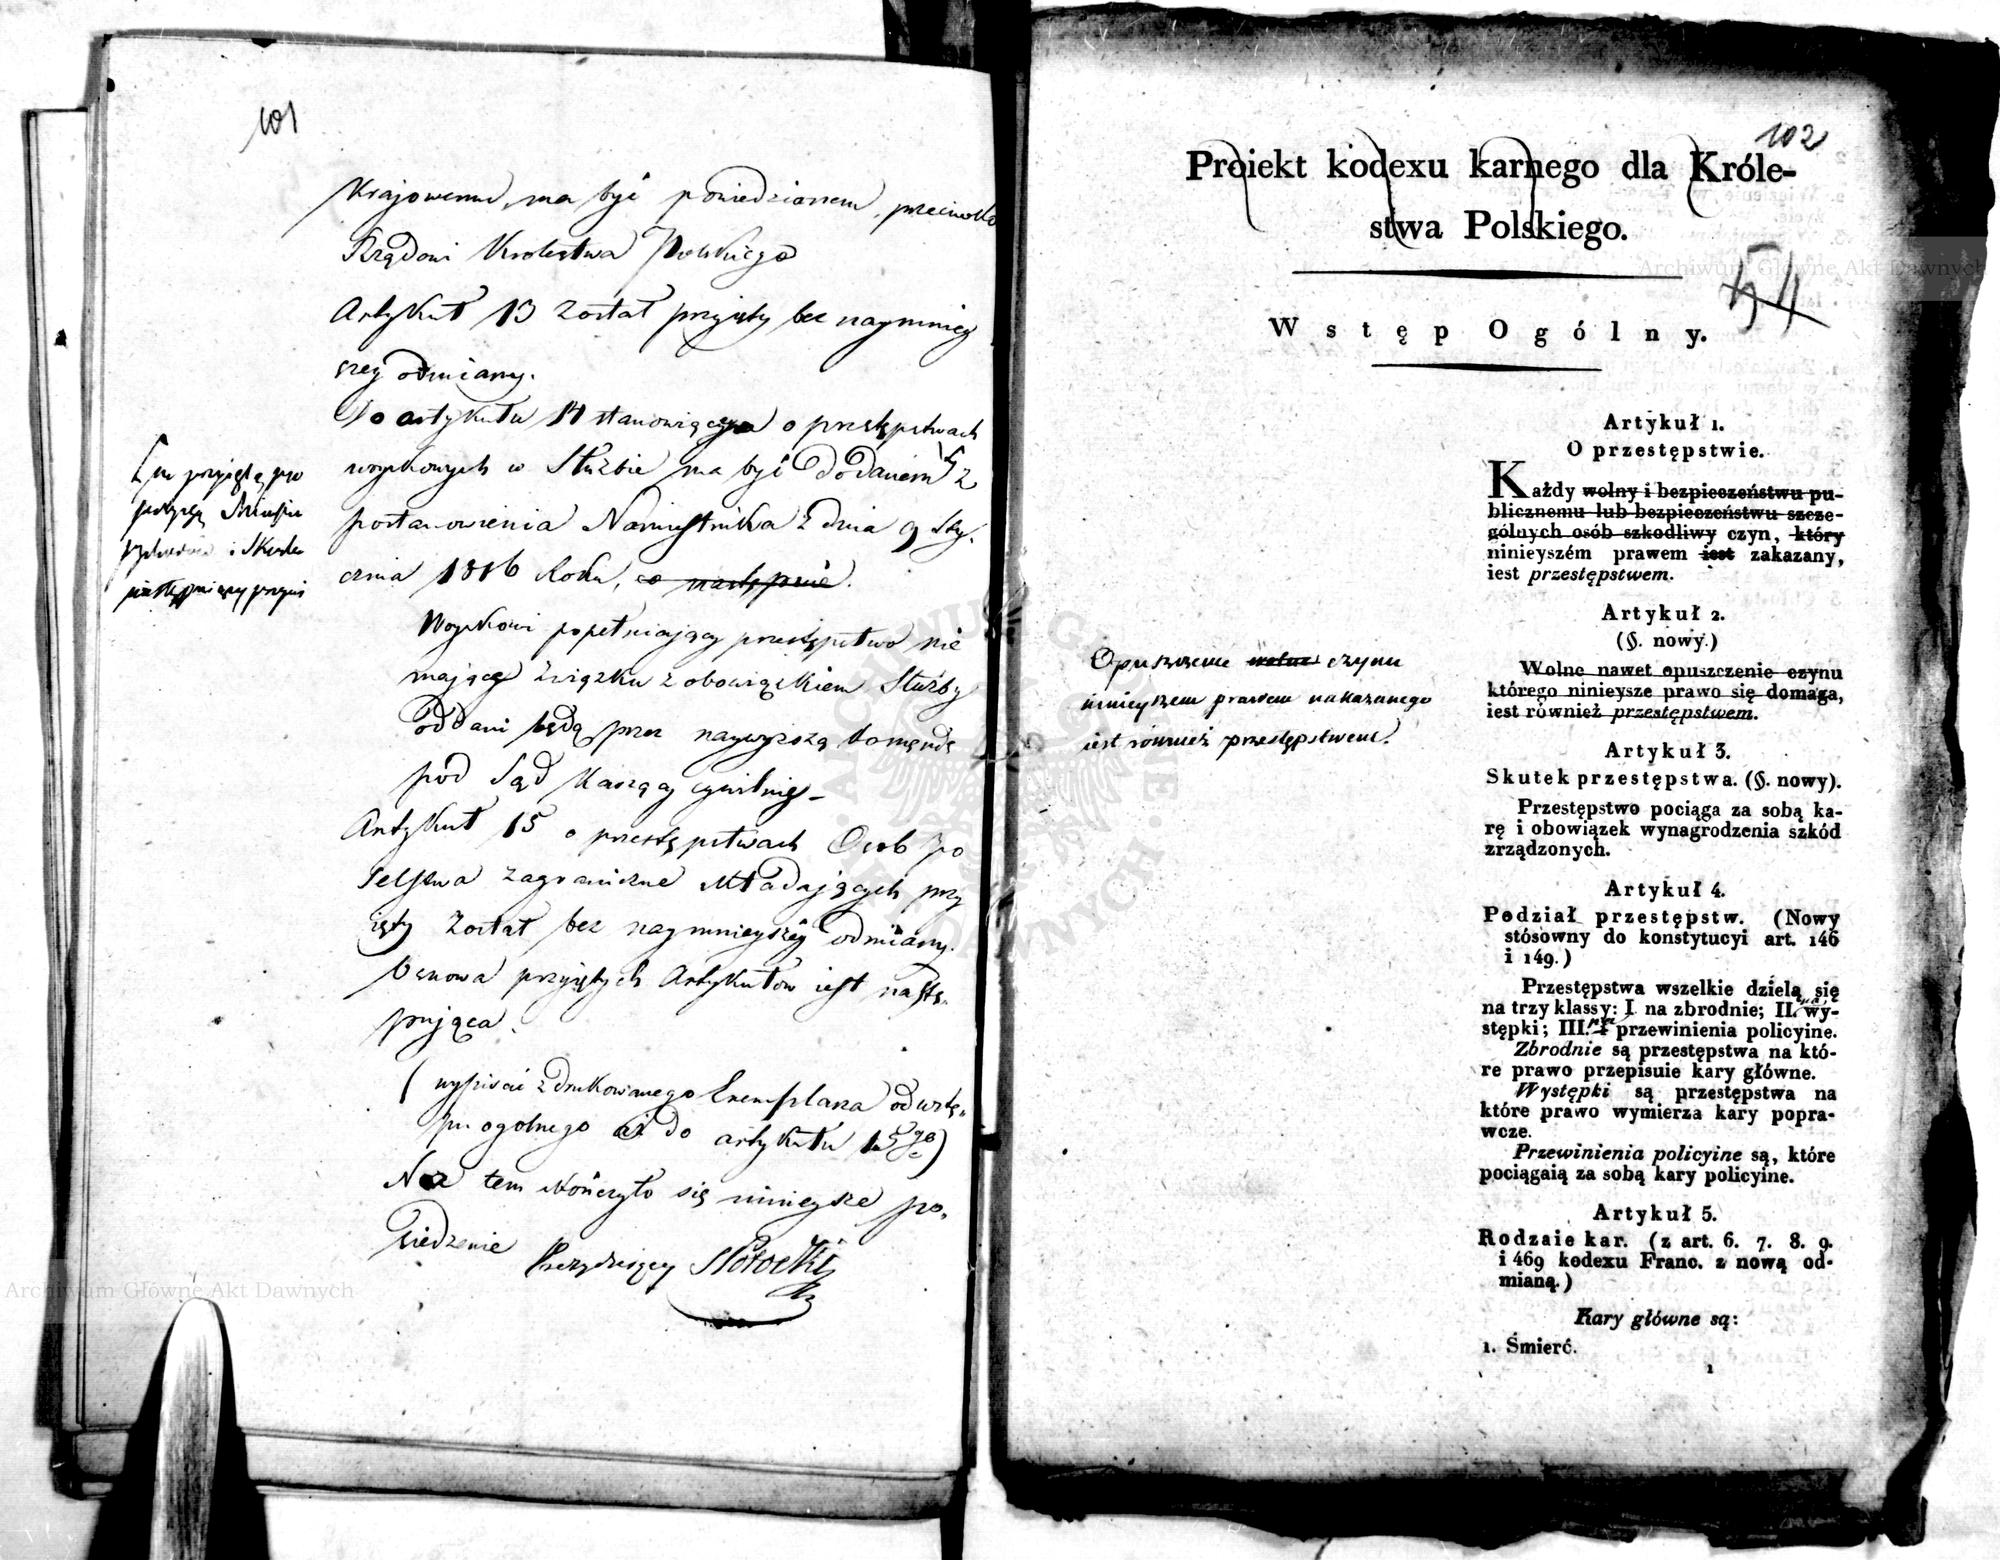 101
Krajowemu, ma być powiedzianem, przeciwko
Rządowi Krolestwa Polskiego
Artykuł 13 został przyięty bez naymniey
szey odmiany.
Do artykułu 14 stanowiącego o przestępstwach
woyskowych w Służbie ma być dodanem z
postanowienia Namiestnika z dnia 9 Sty-
cznia 1816 Roku, co następnie.
Woyskowi popełniający przestępstwo nie
mające związku z obowiązkiem Służby
oddani będą przez naywyższą komendę
pod Sąd Karzący cywilny –
Artykuł 15 o przestępstwach Osob Po
selstwa zagraniczne składających przy
ięty został bez naymnieyszey odmiany.
Osnowa przyiętych Artykułow iest nastę-
pująca.
(wypisać z drukowanego Exemplarza od wstę-
pu ogolnego aż do artykułu 15go)
Na tem skończyło się ninieysze po-
siedzenie
Prezyduiący
102
Proiekt kodexu karnego dla Króle-
stwa Polskiego.
54
Wstęp Ogólny.
Artykuł 1.
O przestępstwie.
Każdy wolny i bezpieczeństwu pu-
blicznemu lub bezpieczeństwu szcze-
gólnych osób szkodliwy czyn, który
ninieyszém prawem iest zakazany,
iest przestępstwem.
Artykuł 2.
(§. nowy.)
Wolne nawet opuszczenie czynu
którego ninieysze prawo się domaga,
iest również przestępstwem.
Opuszczenie wolne czynu
ninieyszem prawem nakazanego
iest również przestępstwem.
Artykuł 3.
Skutek przestępstwa. (§. nowy).
Przestępstwo pociąga za sobą ka-
rę i obowiązek wynagrodzenia szkód
zrządzonych.
Artykuł 4.
Podział przestępstw. (Nowy
stósowny do konstytucyi art. 146
i 149.)
Przestępstwa wszelkie dzielą się
na trzy klassy: I. na zbrodnie; II. na wy-
stępki; III. na przewinienia policyine.
Zbrodnie są przestępstwa na któ-
re prawo przepisuie kary główne.
Występki są przestępstwa na
które prawo wymierza kary popra-
wcze.
Przewinienia policyine są, które
pociągaią za sobą kary policyine.
Artykuł 5.
Rodzaie kar. (z art. 6. 7. 8. 9.
i 469 kodexu Franc. z nową od-
mianą.)
Kary główne są:
1. Śmierć.
1
Archiwum Główne Akt Dawnych
Archiwum Główne Akt Dawnych
ARCHIWUM GŁÓWNE AKT DAWNYCH